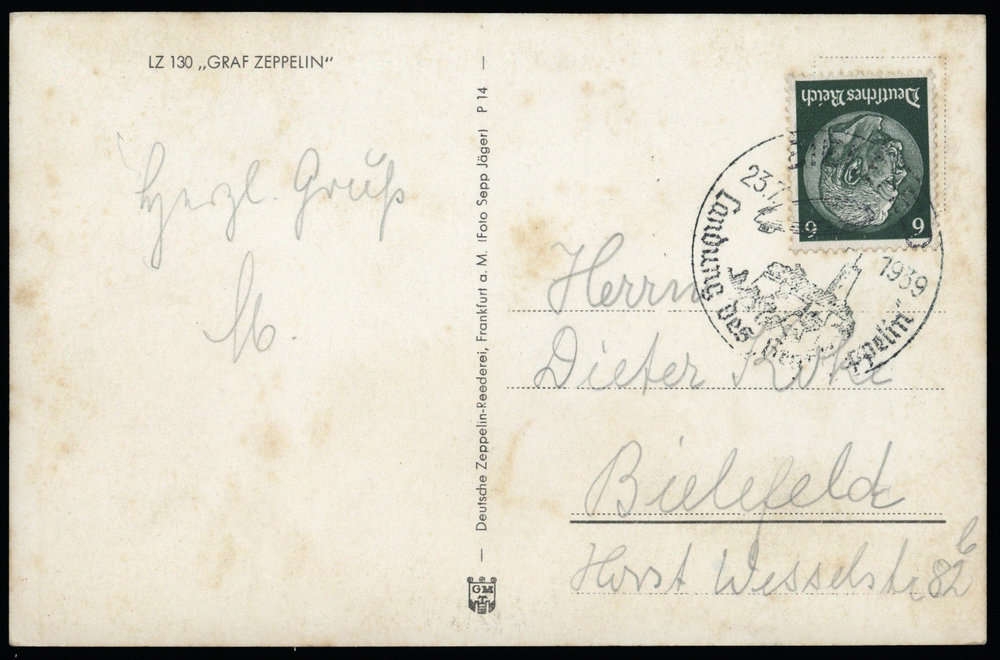 LZ 130 „GRAF ZEPPELIN“
Herzl. Gruß
M.
Deutsche Zeppelin-Reederei, Frankfurt a. M. (Foto Sepp Jäger) P 14
GMT
Deutsches Reich
6 6
23.7.
1939
Landung des
Herrn
Dieter
Bielefeld
Horst Wesselstr 82 b